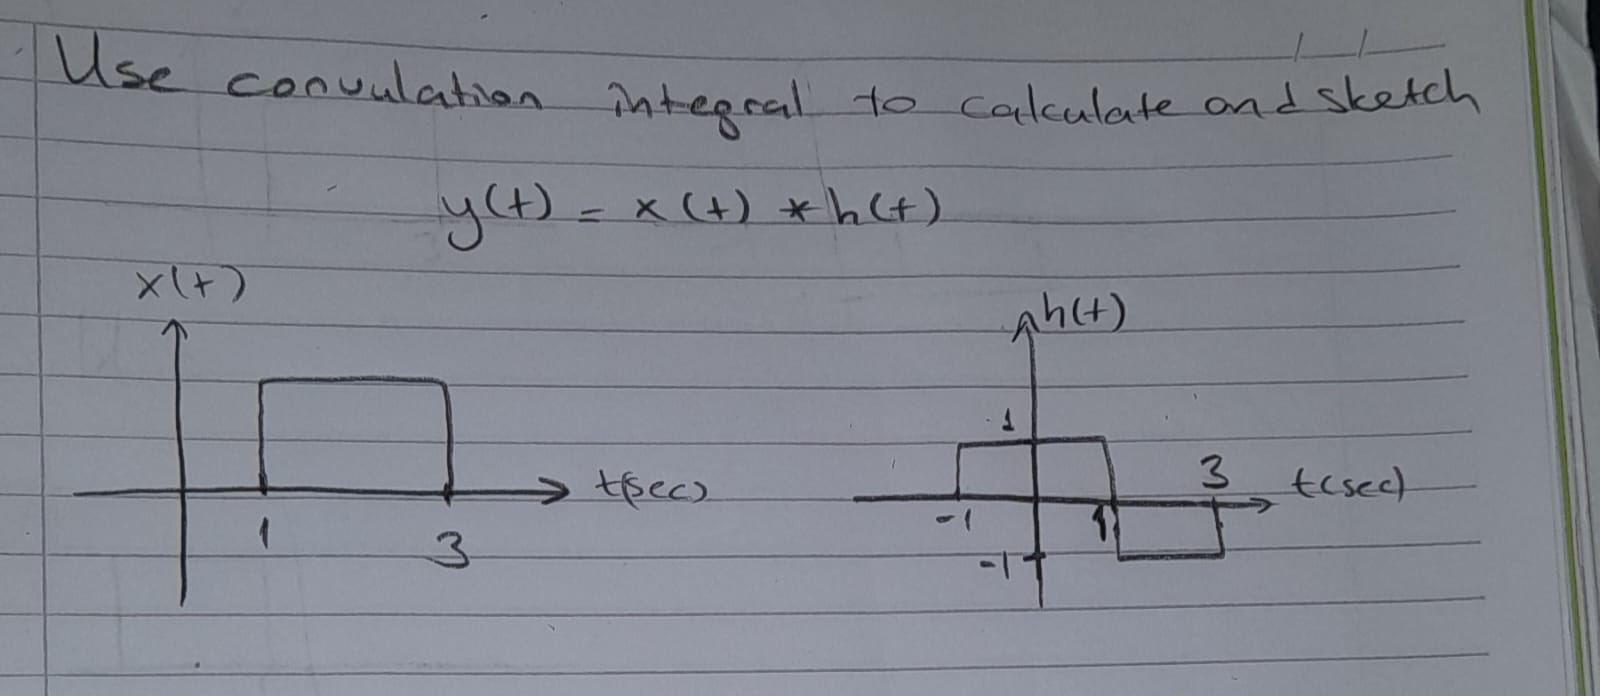 Use convulation integral to calculate and sketch
y(t) = x(t) * h(t)
x(t)
t(sec)
1
3
h(t)
1
3
t(sec)
-1
1
-1